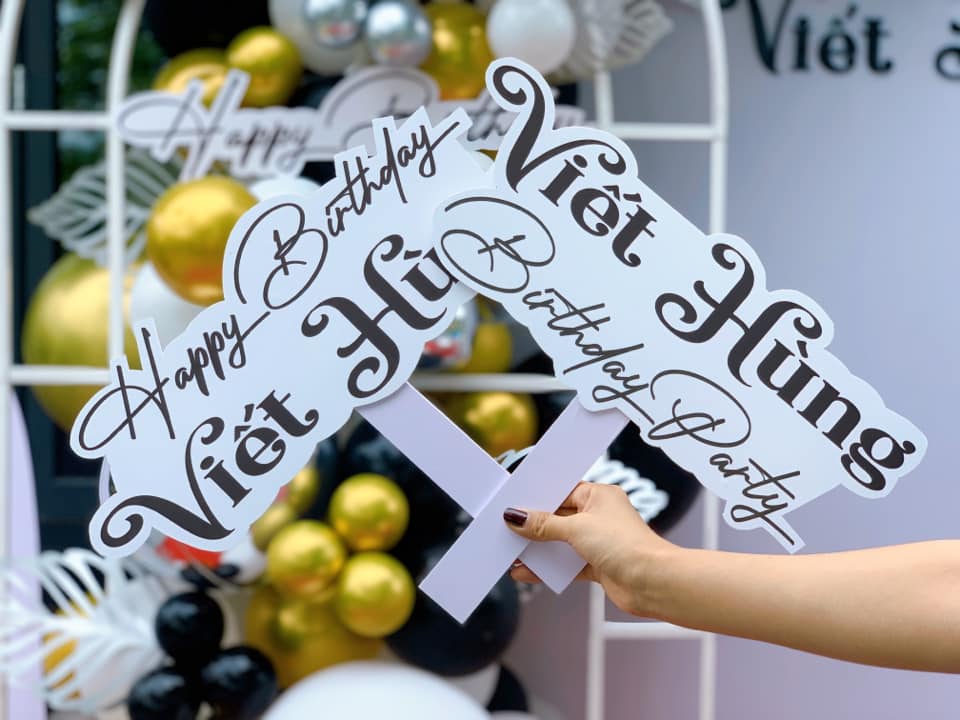 Viết
Happy Birthday
Happy Birthday
Viết Hù
Viết Hùng
Birthday Party